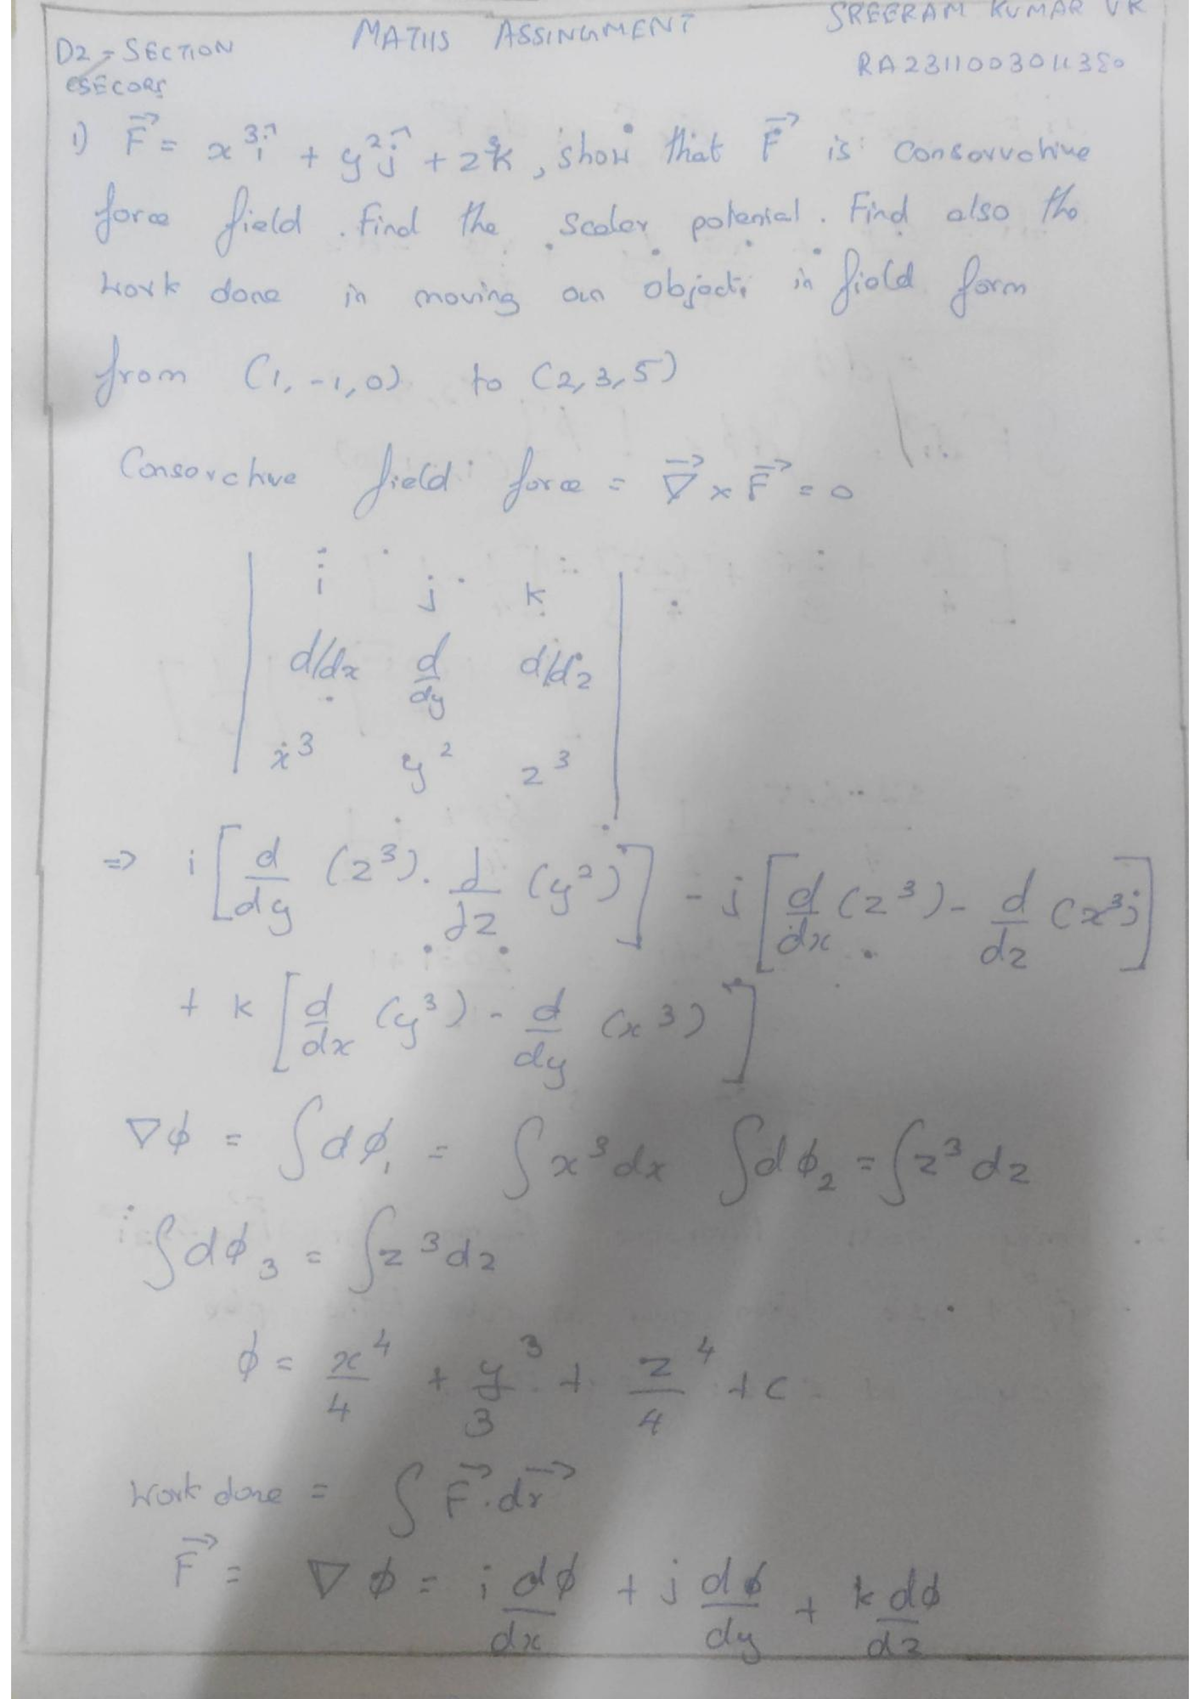 MATHS ASSINGMENT
SREERAM KUMAR VR
D2 - SECTION
RA2311003011350
CSECORE
1) F⃗ = x³î + y²ĵ + z³k, show that F⃗ is Consorvative
force field. Find the scaler potenial. Find also the
work done in moving an object in field form
from (1, -1, 0) to (2, 3, 5)
Consorctive field force = ∇⃗ × F⃗ = 0
| i j k |
| d/dx d/dy d/dz |
| x³ y² z³ |
=> i [d/dy (z³) . d/dz (y²)] - j [d/dx (z³) - d/dz (x³)]
+ k [d/dx (y³) - d/dy (x³)]
∇ϕ = ∫dϕ₁ = ∫x³dx ∫dϕ₂ = ∫z³dz
∫dϕ₃ = ∫z³dz
ϕ = x⁴/4 + y³/3 + z⁴/4 + c
Work done = ∫ F⃗ . dr⃗
F⃗ = ∇ϕ = i dϕ/dx + j dϕ/dy + k dϕ/dz